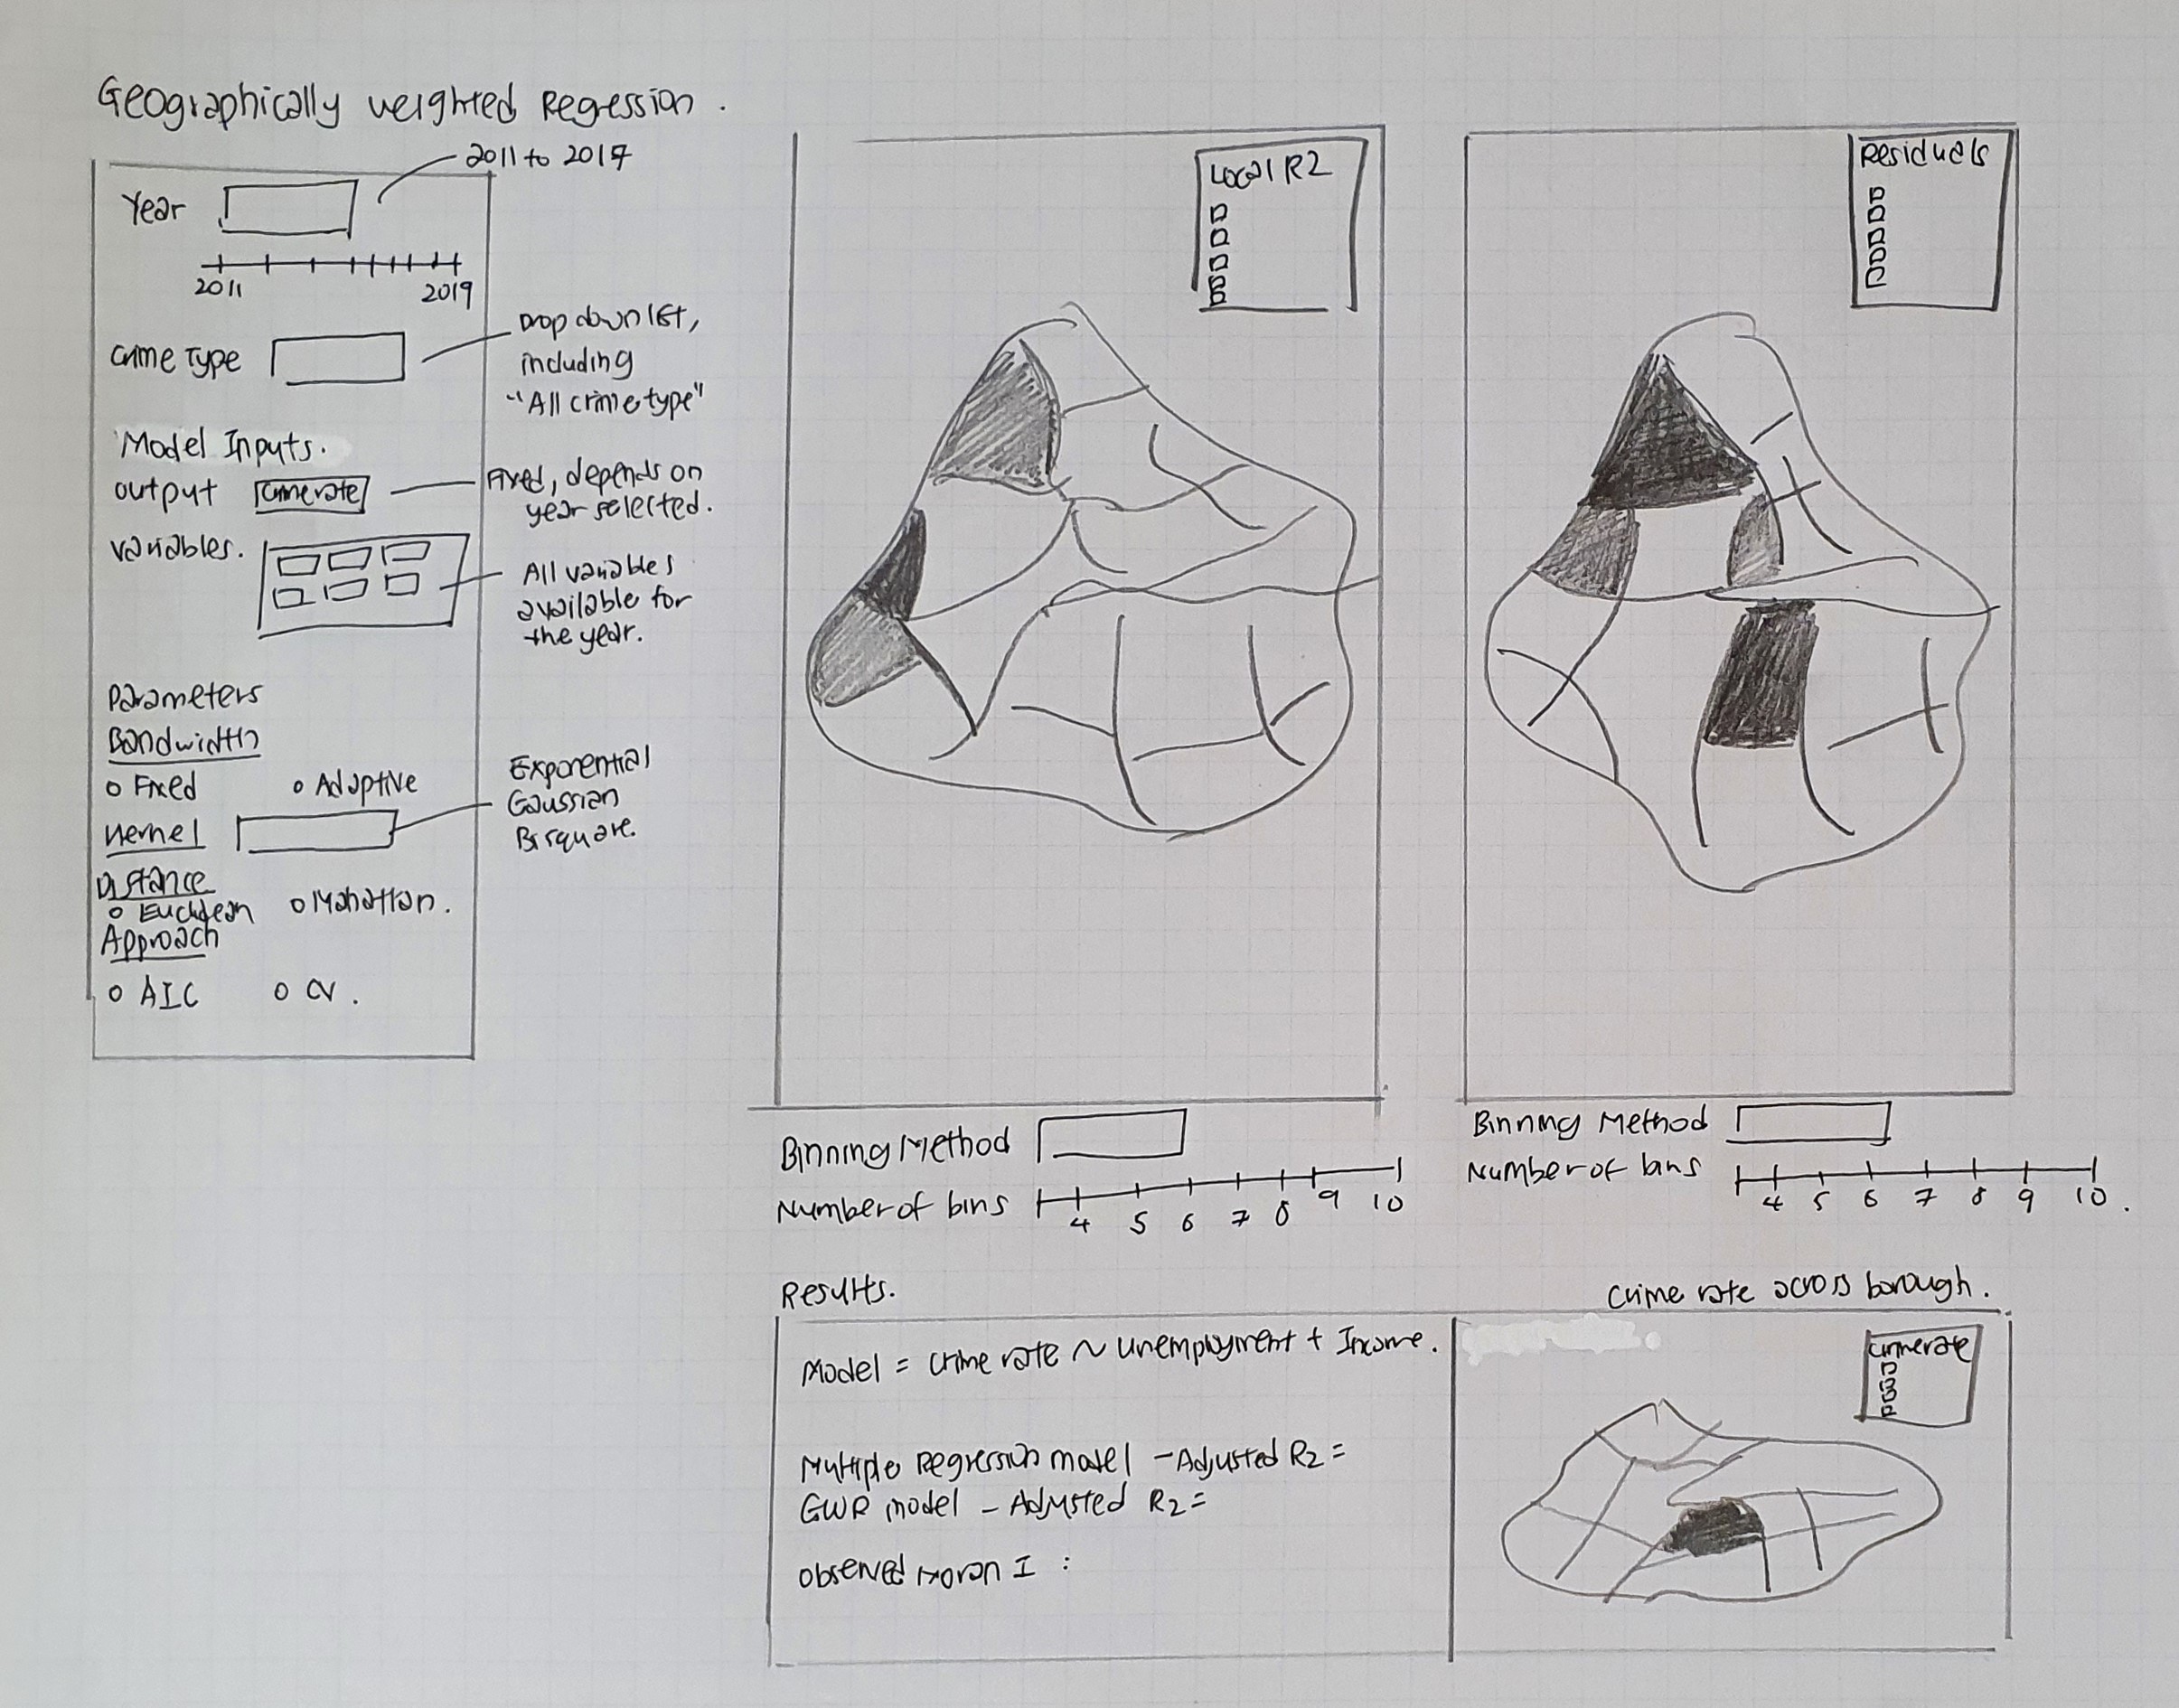 Geographically weighted Regression.
2011 to 2019
Year
2011 2019
Crime Type
Drop down list,
including
"All crime type"
Model Inputs.
output Crimerate
Fixed, depends on
year selected.
variables.
All variables
available for
the year.
Parameters
Bandwidth
Fixed Adaptive
Kernel
Exponential
Gaussian
Bisquare.
Distance
Euclidean Mahattan.
Approach
AIC CV.
Local R2
Residuals
Binning Method
Number of bins
4 5 6 7 8 9 10
Binning Method
Number of bins
4 5 6 7 8 9 10.
Results.
Model = Crime rate ~ Unemployment + Income.
Multiple Regression model - Adjusted R2 =
GWR model - Adjusted R2 =
Observed Moran I :
Crime rate across borough.
Crimerate